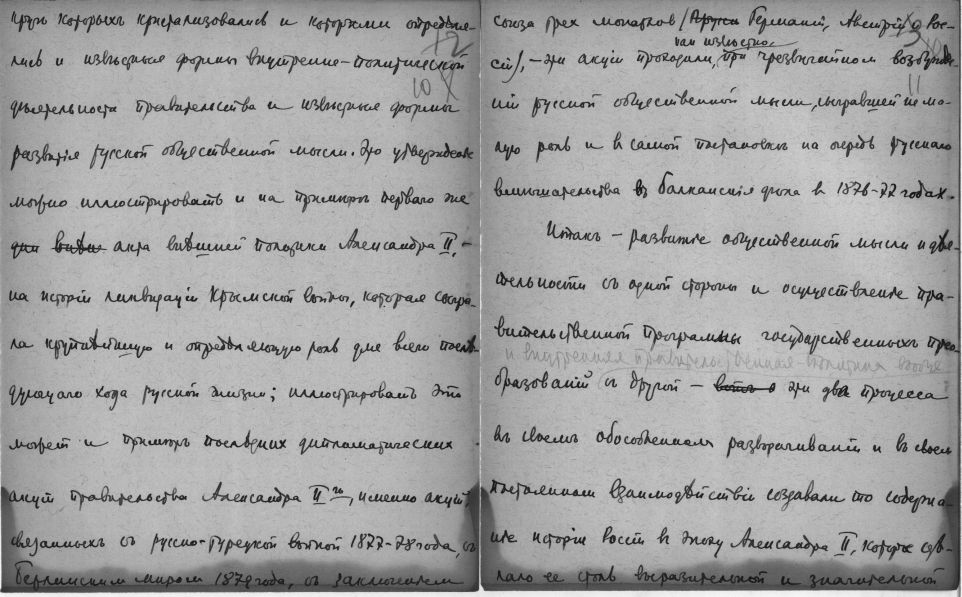 кругъ которыхъ кристализовались и которыми опредѣля-
12
лись и извѣстные формы внутренне-политической
10
дѣятельности правительства и извѣстные формы
развитія русской общественной мысли. Это утвержденіе
можно иллюстрировать и на примѣрѣ перваго же
акта внѣшней политики Александра II, –
на исторіи ликвидаціи Крымской войны, которая сыгра-
ла крупнѣйшую и опредѣляющую роль для всего послѣ-
дующаго хода русской жизни; иллюстрировать это
можетъ и примѣръ послѣднихъ дипломатическихъ
акцій правительства Александра II го, именно акцій,
связанныхъ съ русско-турецкой войной 1877-78 года, съ
Берлинскимъ миромъ 1878 года, съ заключеніемъ
союза трех монархов (Германіи, Австріи и Рос-
13
какъ извѣстно
сіи), – эти акціи проходили, при чрезвычайном возбужде-
11
ніи русской общественной мысли, сыгравшей не ма-
лую роль и в самой постановкѣ на очередь русскаго
вмѣшательства въ балканскія дѣла в 1876-77 годах.
Итакъ – развитіе общественной мысли и дѣя-
тельности съ одной стороны и осуществленіе пра-
вительственной программы государственныхъ прео-
и внутренняя правительственная политика вообще
бразованій съ другой – эти два процесса
въ своемъ обособленномъ разворачиваніи и въ своем
постоянном взаимодѣйствіи создавали то содержа-
ніе исторіи Россіи в эпоху Александра II, которое сдѣ-
лало ее столь выразительной и значительной